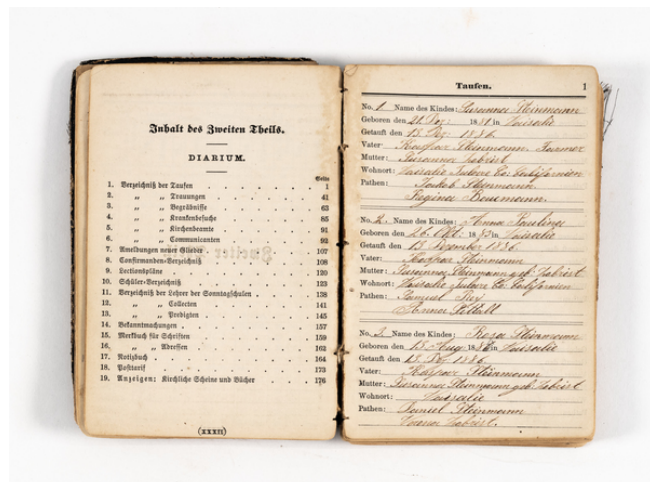 Inhalt des Zweiten Theils.
DIARIUM.
Seite
1. Verzeichniß der Taufen 1
2. „ „ Trauungen 41
3. „ „ Begräbnisse 63
4. „ „ Krankenbesuche 85
5. „ „ Kirchenbeamte 91
6. „ „ Communicanten 92
7. Anmeldungen neuer Glieder 107
8. Confirmanden-Verzeichniß 108
9. Lectionspläne 120
10. Schüler-Verzeichniß 123
11. Verzeichniß der Lehrer der Sonntagschulen 138
12. „ „ Collecten 141
13. „ „ Predigten 145
14. Bekanntmachungen 157
15. Merkbuch für Schriften 159
16. „ „ Adressen 162
17. Notizbuch 164
18. Posttarif 173
19. Anzeigen: Kirchliche Scheine und Bücher 176
(XXXII)
Taufen. 1
No. 1 Name des Kindes: Susanna Steinmann
Geboren den 21. 18 in Visalia
Getauft den 13. Dez. 1886.
Vater: Kaspar Steinmann Farmer
Mutter: Susanna
Wohnort: Visalia Tulare Co. Californien
Pathen: Jakob Steinmann
Regina
No. 2. Name des Kindes: Anna Paulina
Geboren den 26. Okt. 18 in Visalia
Getauft den 13 Dezember 1886.
Vater: Kaspar Steinmann
Mutter: Susanna Steinmann geb.
Wohnort: Visalia Tulare Co. Californien
Pathen: Samuel
Anna
No. 3. Name des Kindes: Rosa Steinmann
Geboren den 15. Aug. 18 in Visalia
Getauft den 13. Dez. 1886.
Vater: Kaspar Steinmann
Mutter: Susanna Steinmann geb.
Wohnort: Visalia
Pathen: Daniel Steinmann